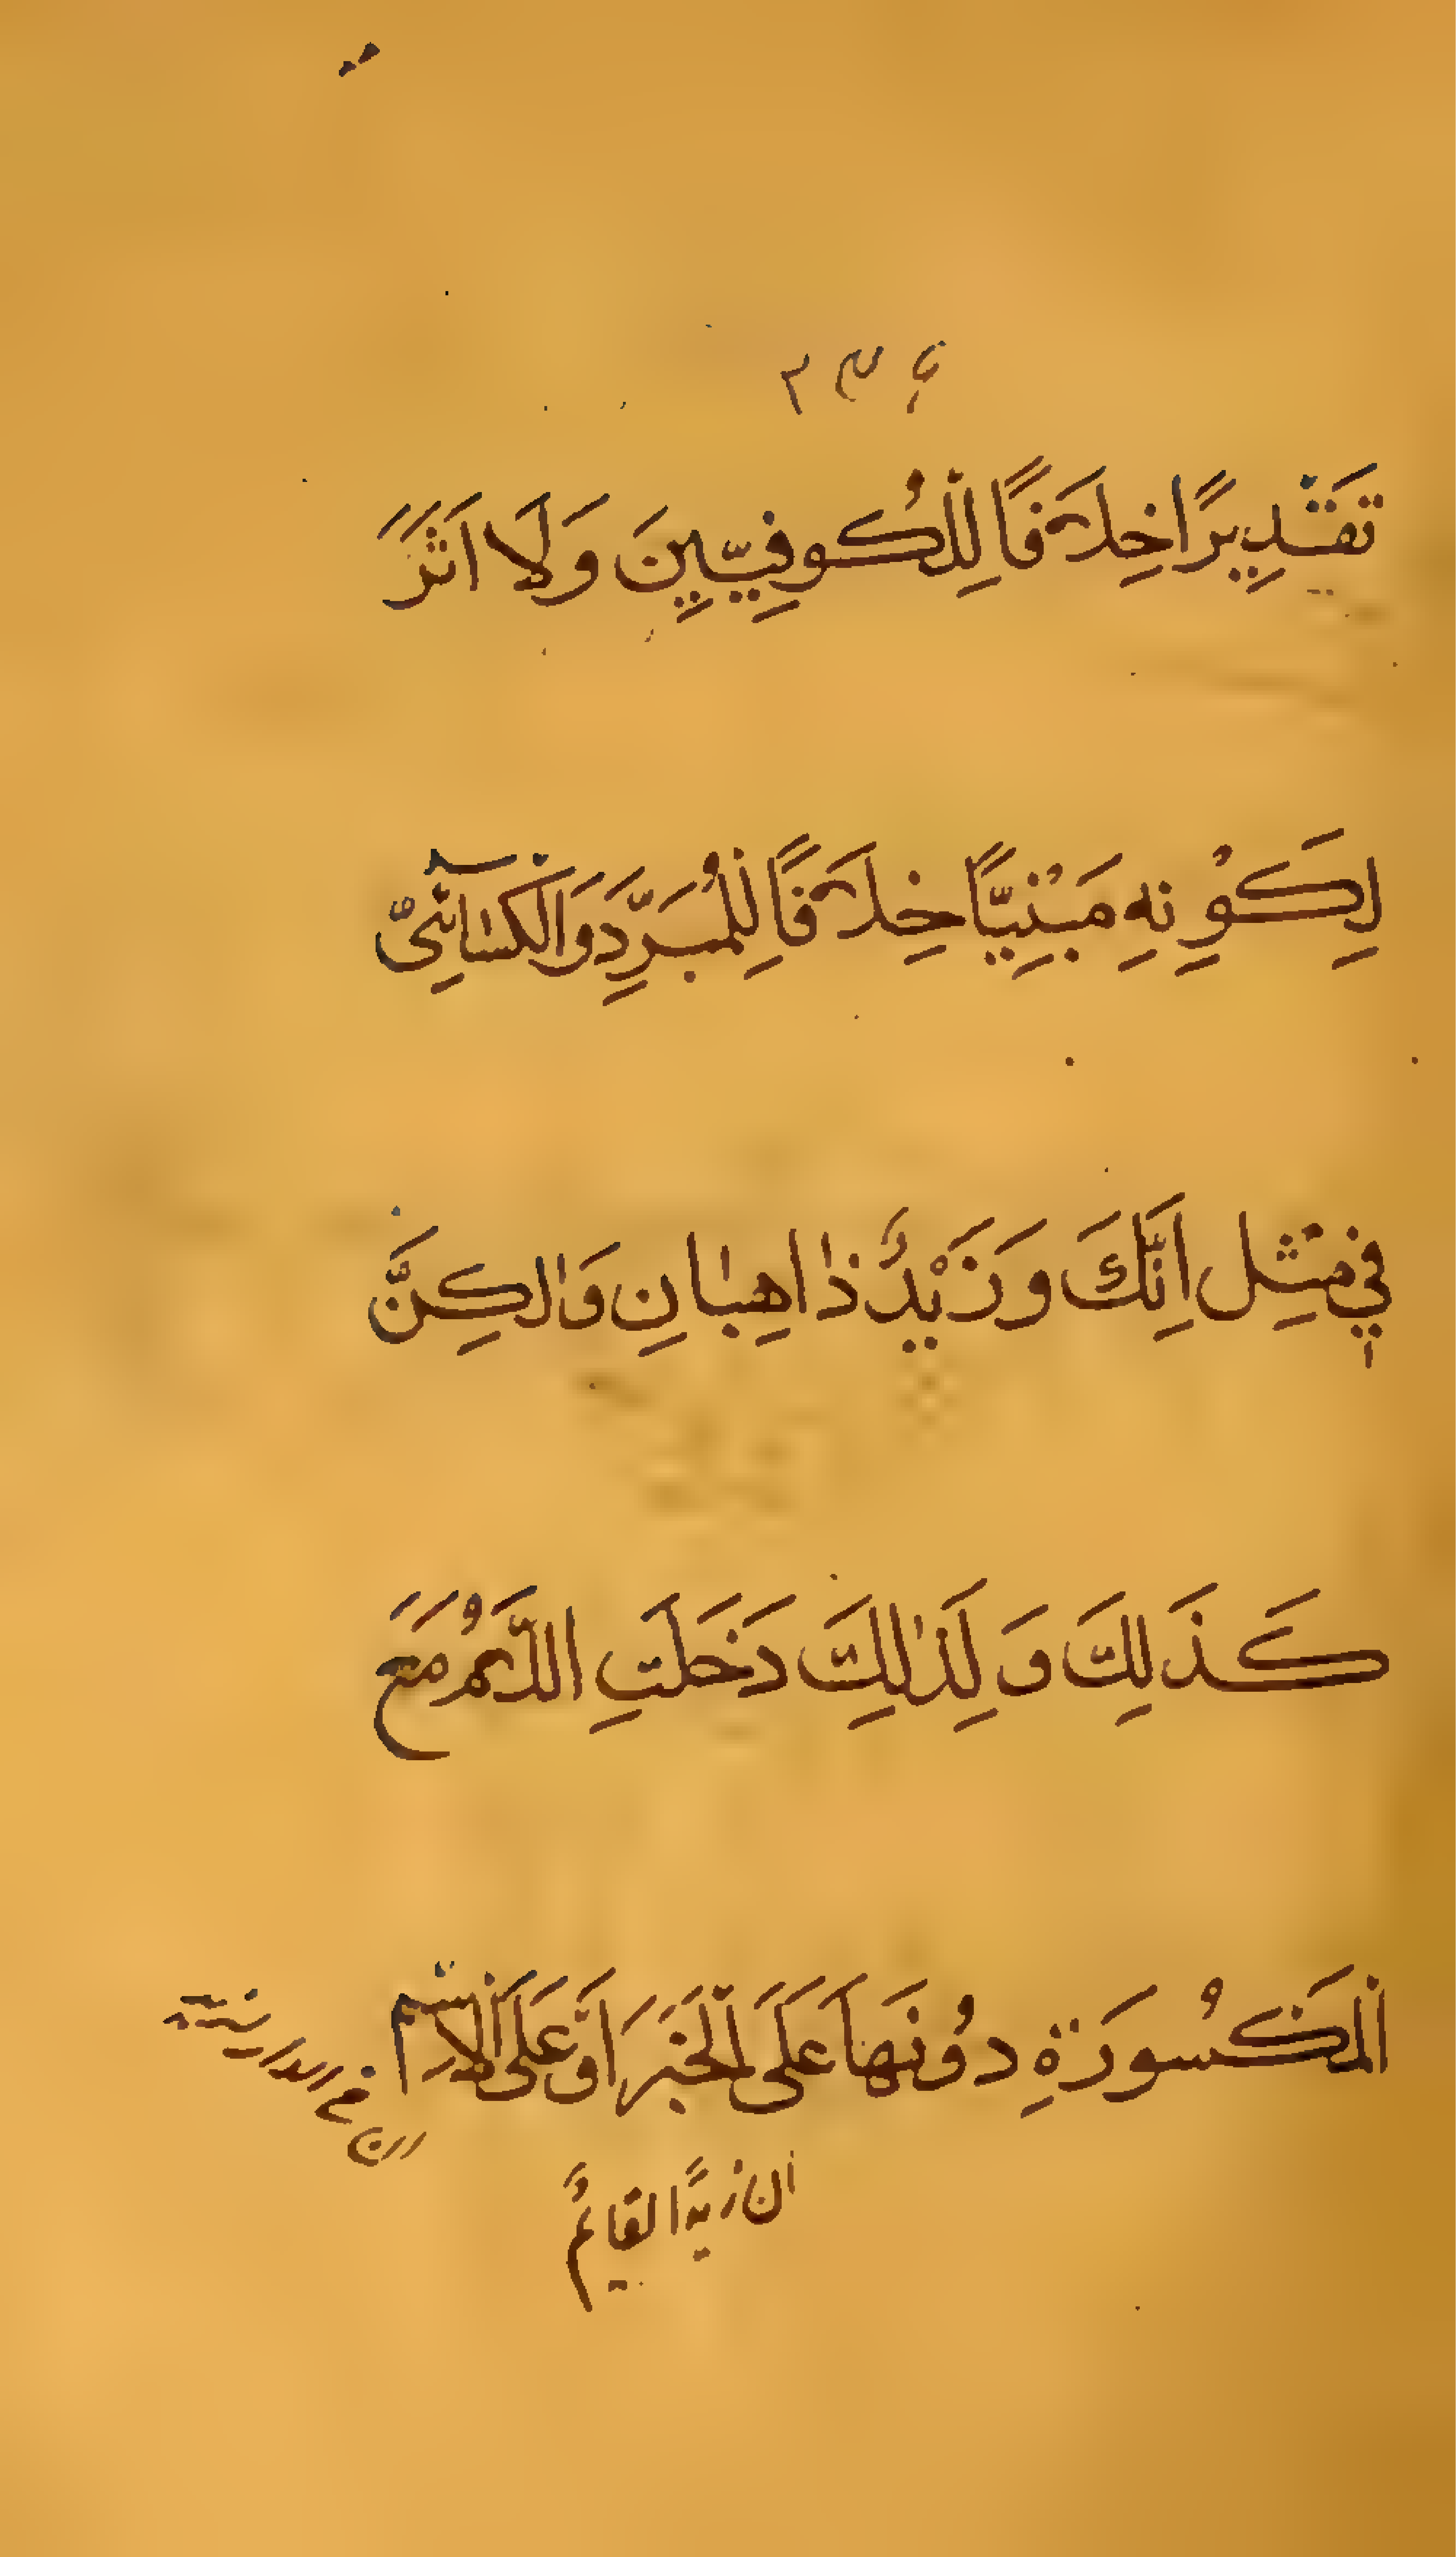 تَقْدِيرًا خِلَافًا لِلْكُوفِيِّينَ وَلَا اَثَرَ
لِكَوْنِهِ مَبْنِيًّا خِلَافًا لِلْمُبَرَّدِ وَالْكِسَائِيِّ
فِي مِثْلِ اِنَّكَ وَزَيْدٌ ذَاهِبَانِ وَلٰكِنَّ
كَذَلِكَ وَلِذٰلِكَ دَخَلَتِ اللَّامُ مَعَ
الْمَكْسُورَةِ دُونَهَا عَلَى الْخَبَرِ اَوْ عَلَى الْاِسْمِ
ان فى الدار
ان زيدًا لقائمٌ